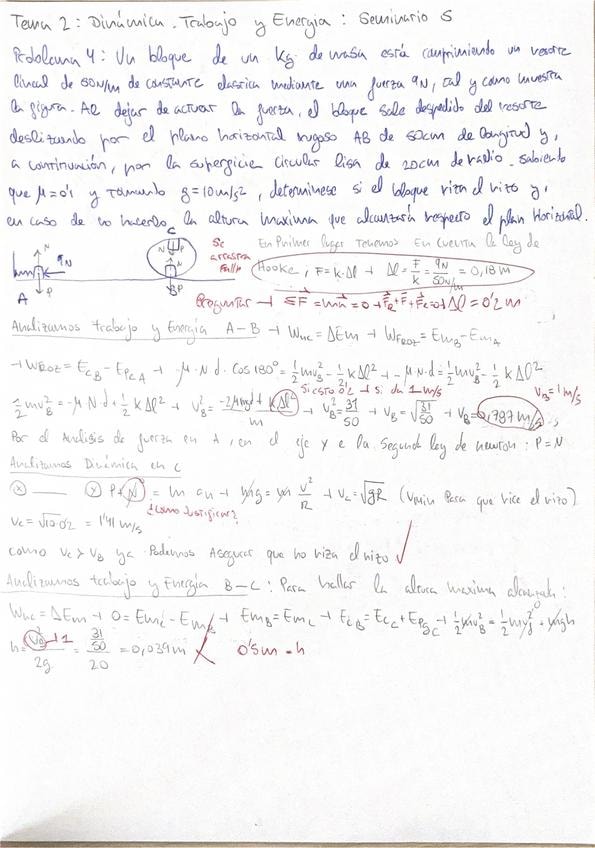 Tema 2: Dinámica. Trabajo y Energía: Seminario 5
Problema 4: Un bloque de un Kg de masa está comprimiendo un resorte
lineal de 50N/m de constante elastica mediante una fuerza 9N, tal y como muestra
la figura. Al dejar de actuar la fuerza, el bloque sale despedido del resorte
deslizando por el plano horizontal rugoso AB de 50cm de longitud y,
a continuación, por la supergicie circular lisa de 20cm de radio. Sabiendo
que μ=0'1 y tomando g=10m/s², determínese si el bloque riza el rizo y,
en caso de no hacerlo, la altura maxima que alcanzará respecto el plan Horizontal.
N 9N P A
C N P N B P
Se arrastra Fallo
En Primer lugar Tenemos En cuenta la ley de
Hooke, F=k·Δl → Δl = F/k = 9N/50N/m = 0,18m
Preguntar → ΣF=ma=0→Fe+F+FR=0→Δl=0'2m
Analizamos trabajo y Energía A-B → Wnc=ΔEm → WFROZ=EmB-EmA
→ WFROZ=ECB-EPCA → -μ·N·d·cos180º=½mvB²-½kΔl² → -μ·N·d=½mvB²-½kΔl²
Si esto 0'2 → si da 1m/s
vB=1m/s
½mvB²=-μNd+½kΔl² → vB²=-2μmgd+kΔl²/m → vB²=31/50 → vB=√31/50 → vB=0,787m/s
Por el Análisis de fuerza en A, en el eje Y e la Segunda ley de newton: P=N
Analizamos Dinámica en C
(x) —— (y) P+N=m an → mg=m v²/R → vc=√gR (Vmin Para que rice el rizo)
¿Como Justificar?
vc=√10·0'2 = 1'41m/s
como vc>vB ya Podemos Asegurar que no riza el rizo ✓
Analizamos trabajo y Energía B-C: Para hallar la altura maxima alcanzada:
Wnc=ΔEm → 0=EmC-EmB → EmB=EmC → ECB=ECC+EPgC → ½mvB²=½mvf²+mgh
0
h=vB²/2g → 1 = 31/50/20 = 0,039m ✗ 0'5m=h